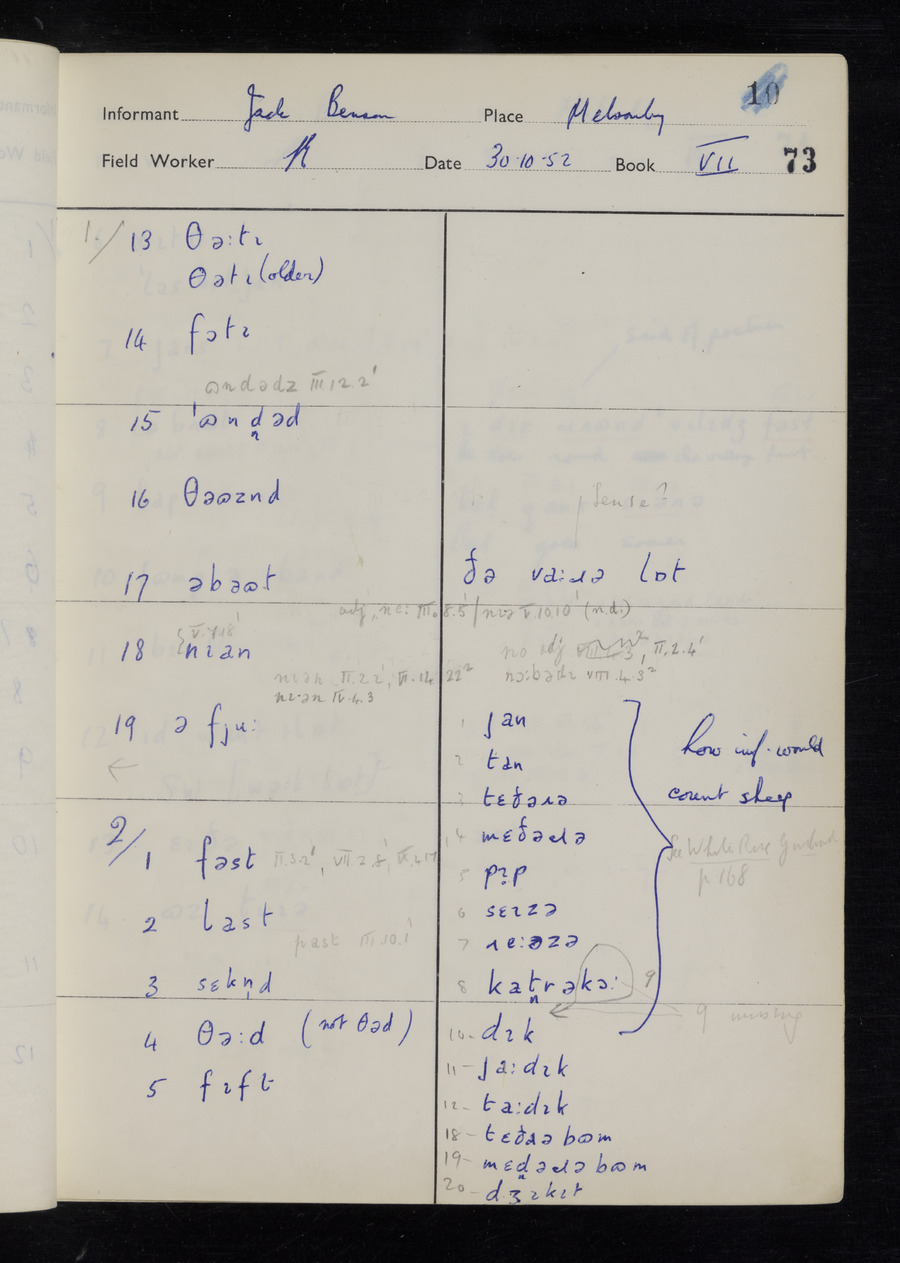 10
Informant Jack Benson Place Melsonby
Field Worker Date 30·10·52 Book VII 73
1./ 13 θəːtɪ
θətɪ (older)
14 fɔtɪ
ɷndədz III.12.2'
15 'ɷndəd
n
16 θəɷznd
17 əbəɷt
V.7.18'
18 nɪən
nɪən II.2.2', VI.14.22²
nɪ·ən IV.4.3
19 ə fjuː
2/ 1 fəst II.3.2', VII.2.8',
2 last
past III.10.1'
3 sɛkn̩d
4 θəːd (not θəd)
5 fɪft
Sense?
ðə vaːɹə lɒt
adj. neː III.8.5' / nɪə V.10.10' (n.d.)
no adj , II.2.4'
nɔːbədɪ VIII.4.3²
1 jan
2 tan
3 tɛðəɹə
4 mɛðəɹə
5 pɪp
6 sɛɪzə
7 ɹeːəzə
8 katrəkəː 9
n
9 missing
10- dɪk
11- jaːdɪk
12- taːdɪk
18- tɛðɹəbɷm
19- mɛdəɹəbɷm
n
20- dʒɪkɪt
how inf. would
count sheep
See White Rose Garland
p 168